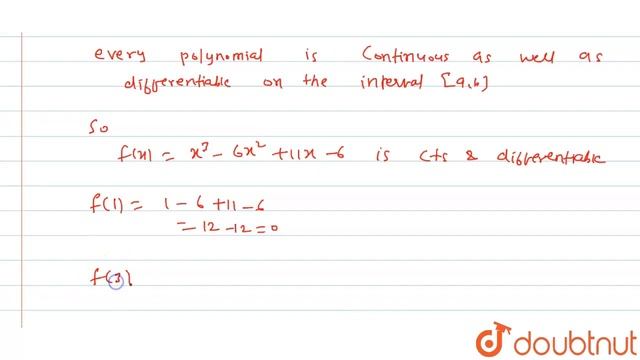 every polynomial is Continuous as well as
differentiable on the interval [a,b]
So
f(x) = x³ - 6x² + 11x - 6 is cts & differentiable
f(1) = 1 - 6 + 11 - 6
= 12 - 12 = 0
f(3)
doubtnut